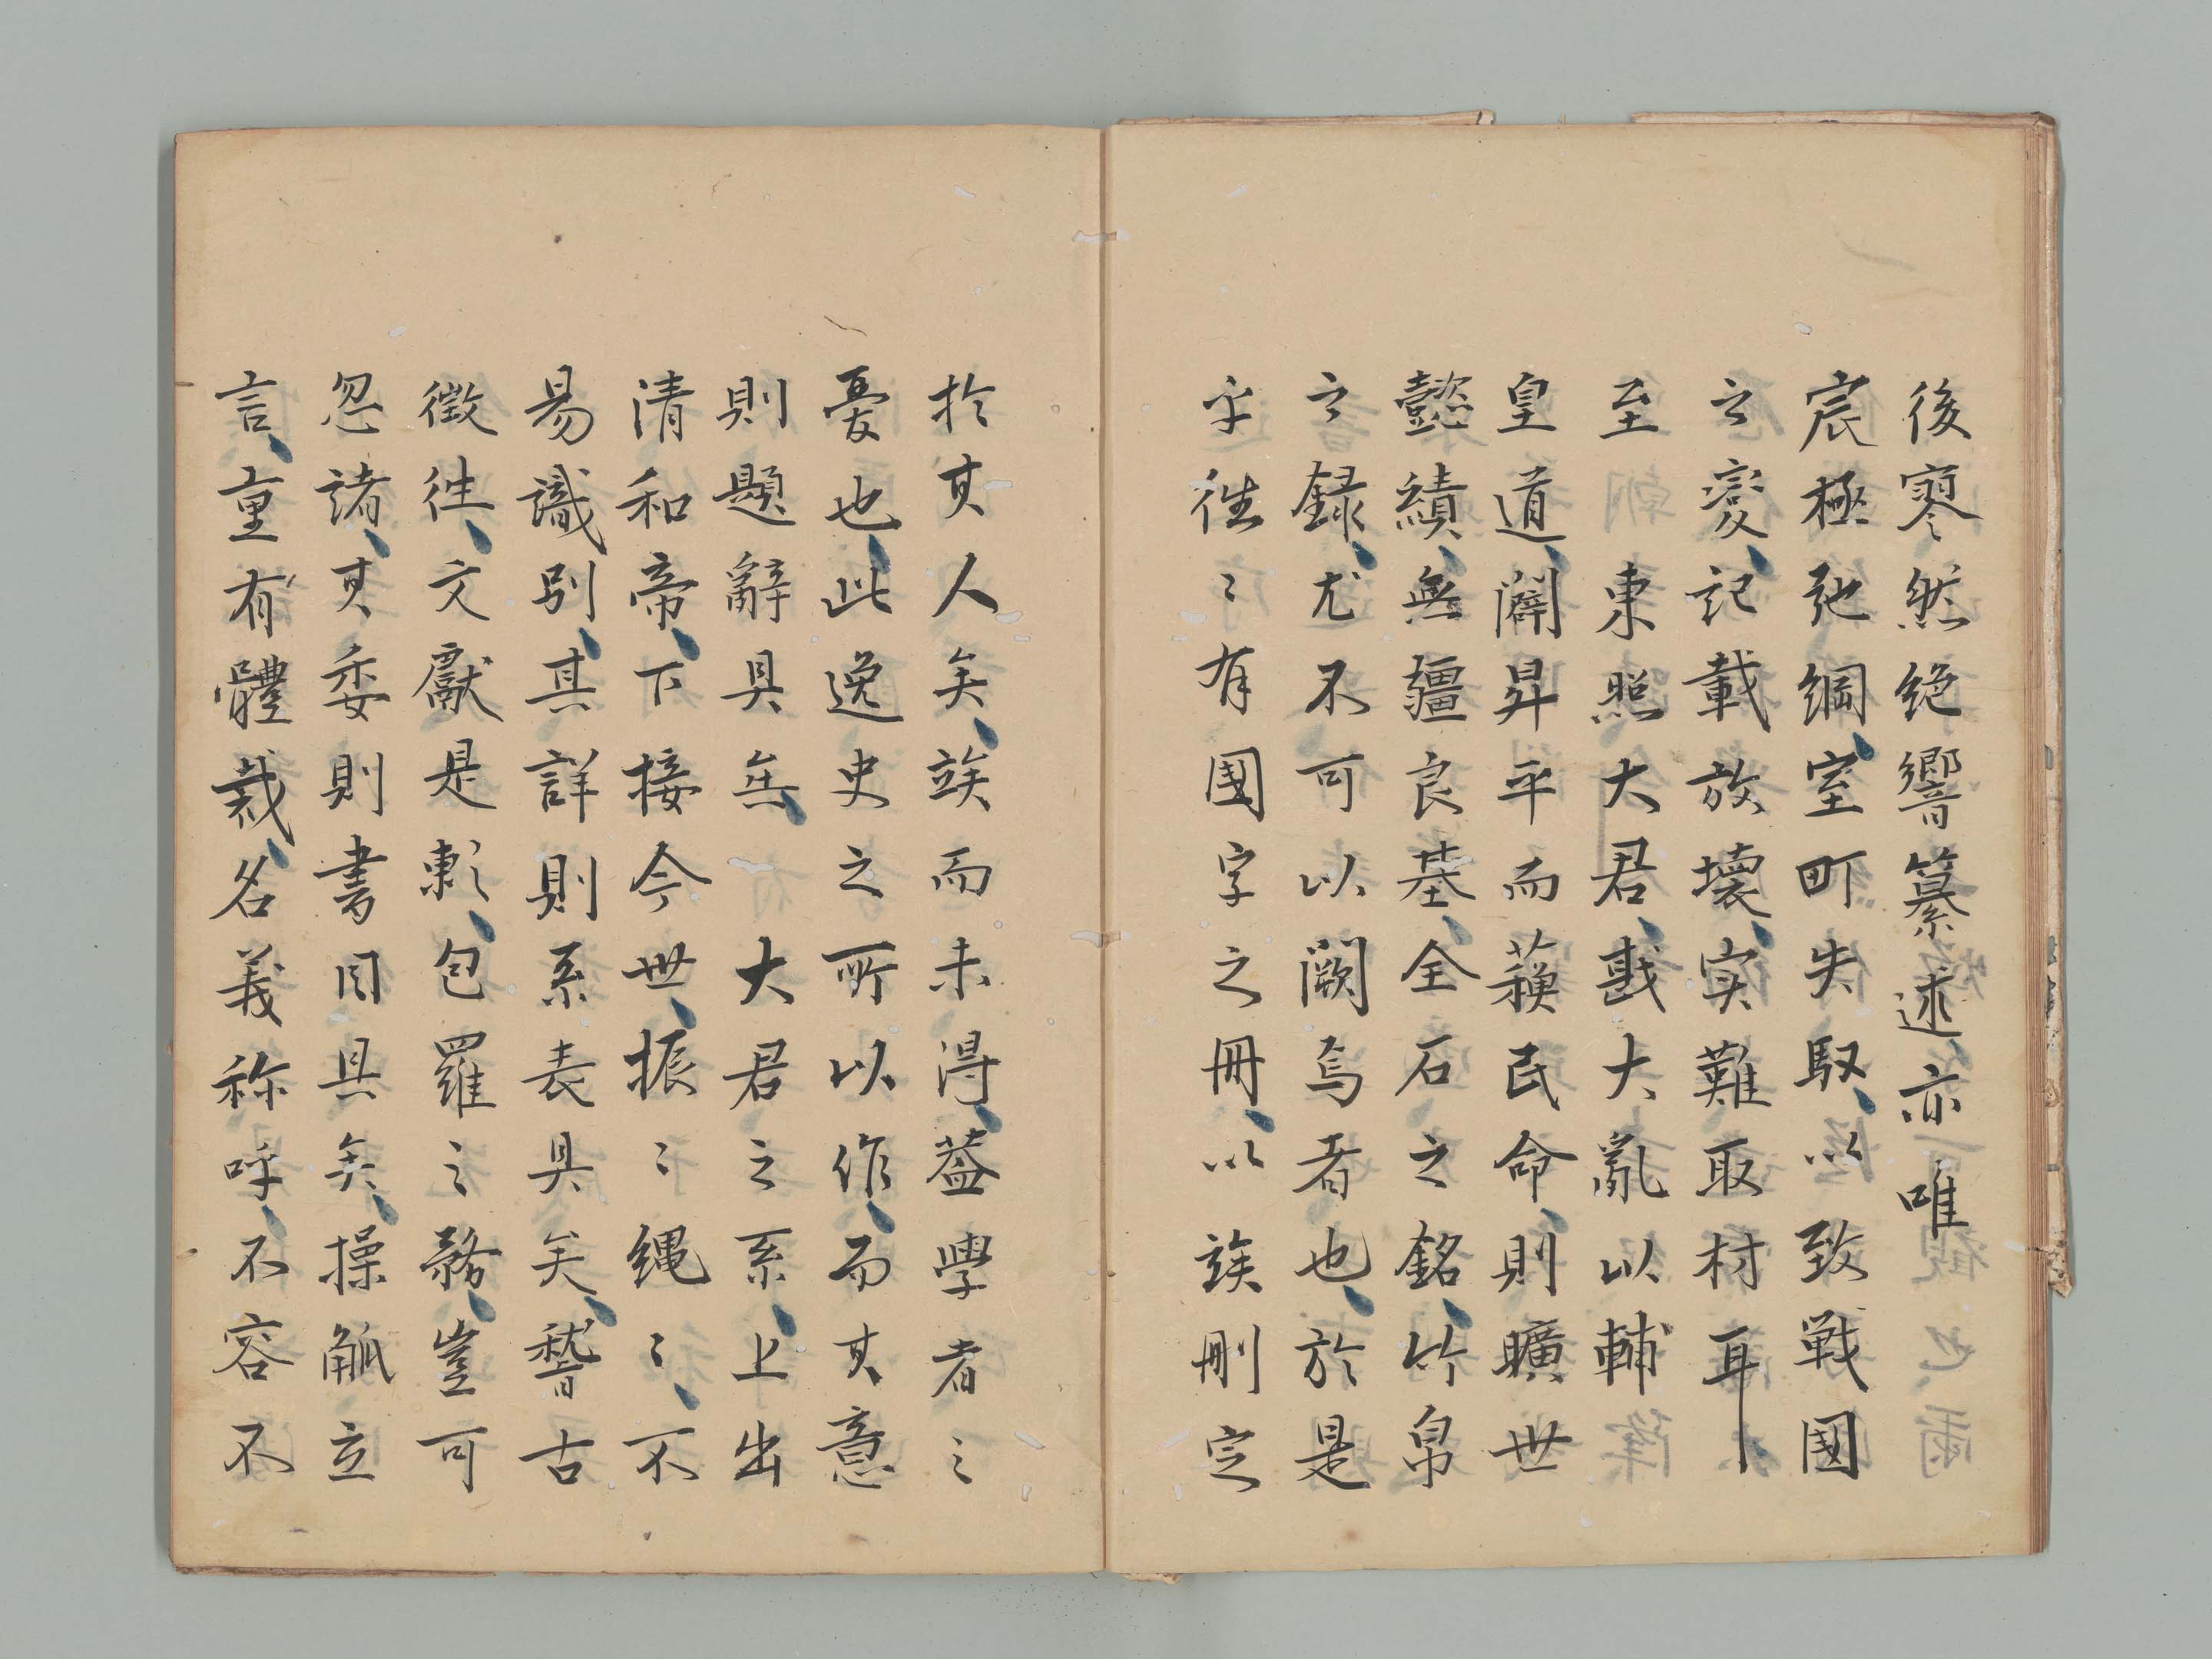 後寥然絶響纂述亦唯
宸極弛綱、室町失馭、以致戦國
之変、記載放壊、実難取材耳
至　東照大君、戡大亂以輔
皇道、闢昇平而蘓民命、則曠世
懿績、無疆良基、全石之銘、竹帛
之録、尤不可以闕焉者也、於是
乎徃〻有國字之冊、以竢刪定
於其人矣、竢而未得、蓋學者之
憂也、此逸史之所以作、而其意
則題辭具無、大君之系、上出
清和帝、下接今世、振〻縄〻、不
易識別、其詳則系表具矣、稽古
徴徃、文獻是頼、包羅之務、豈可
忽諸、其委則書目具矣、操觚立
言、重有體裁、名義称呼、不容不